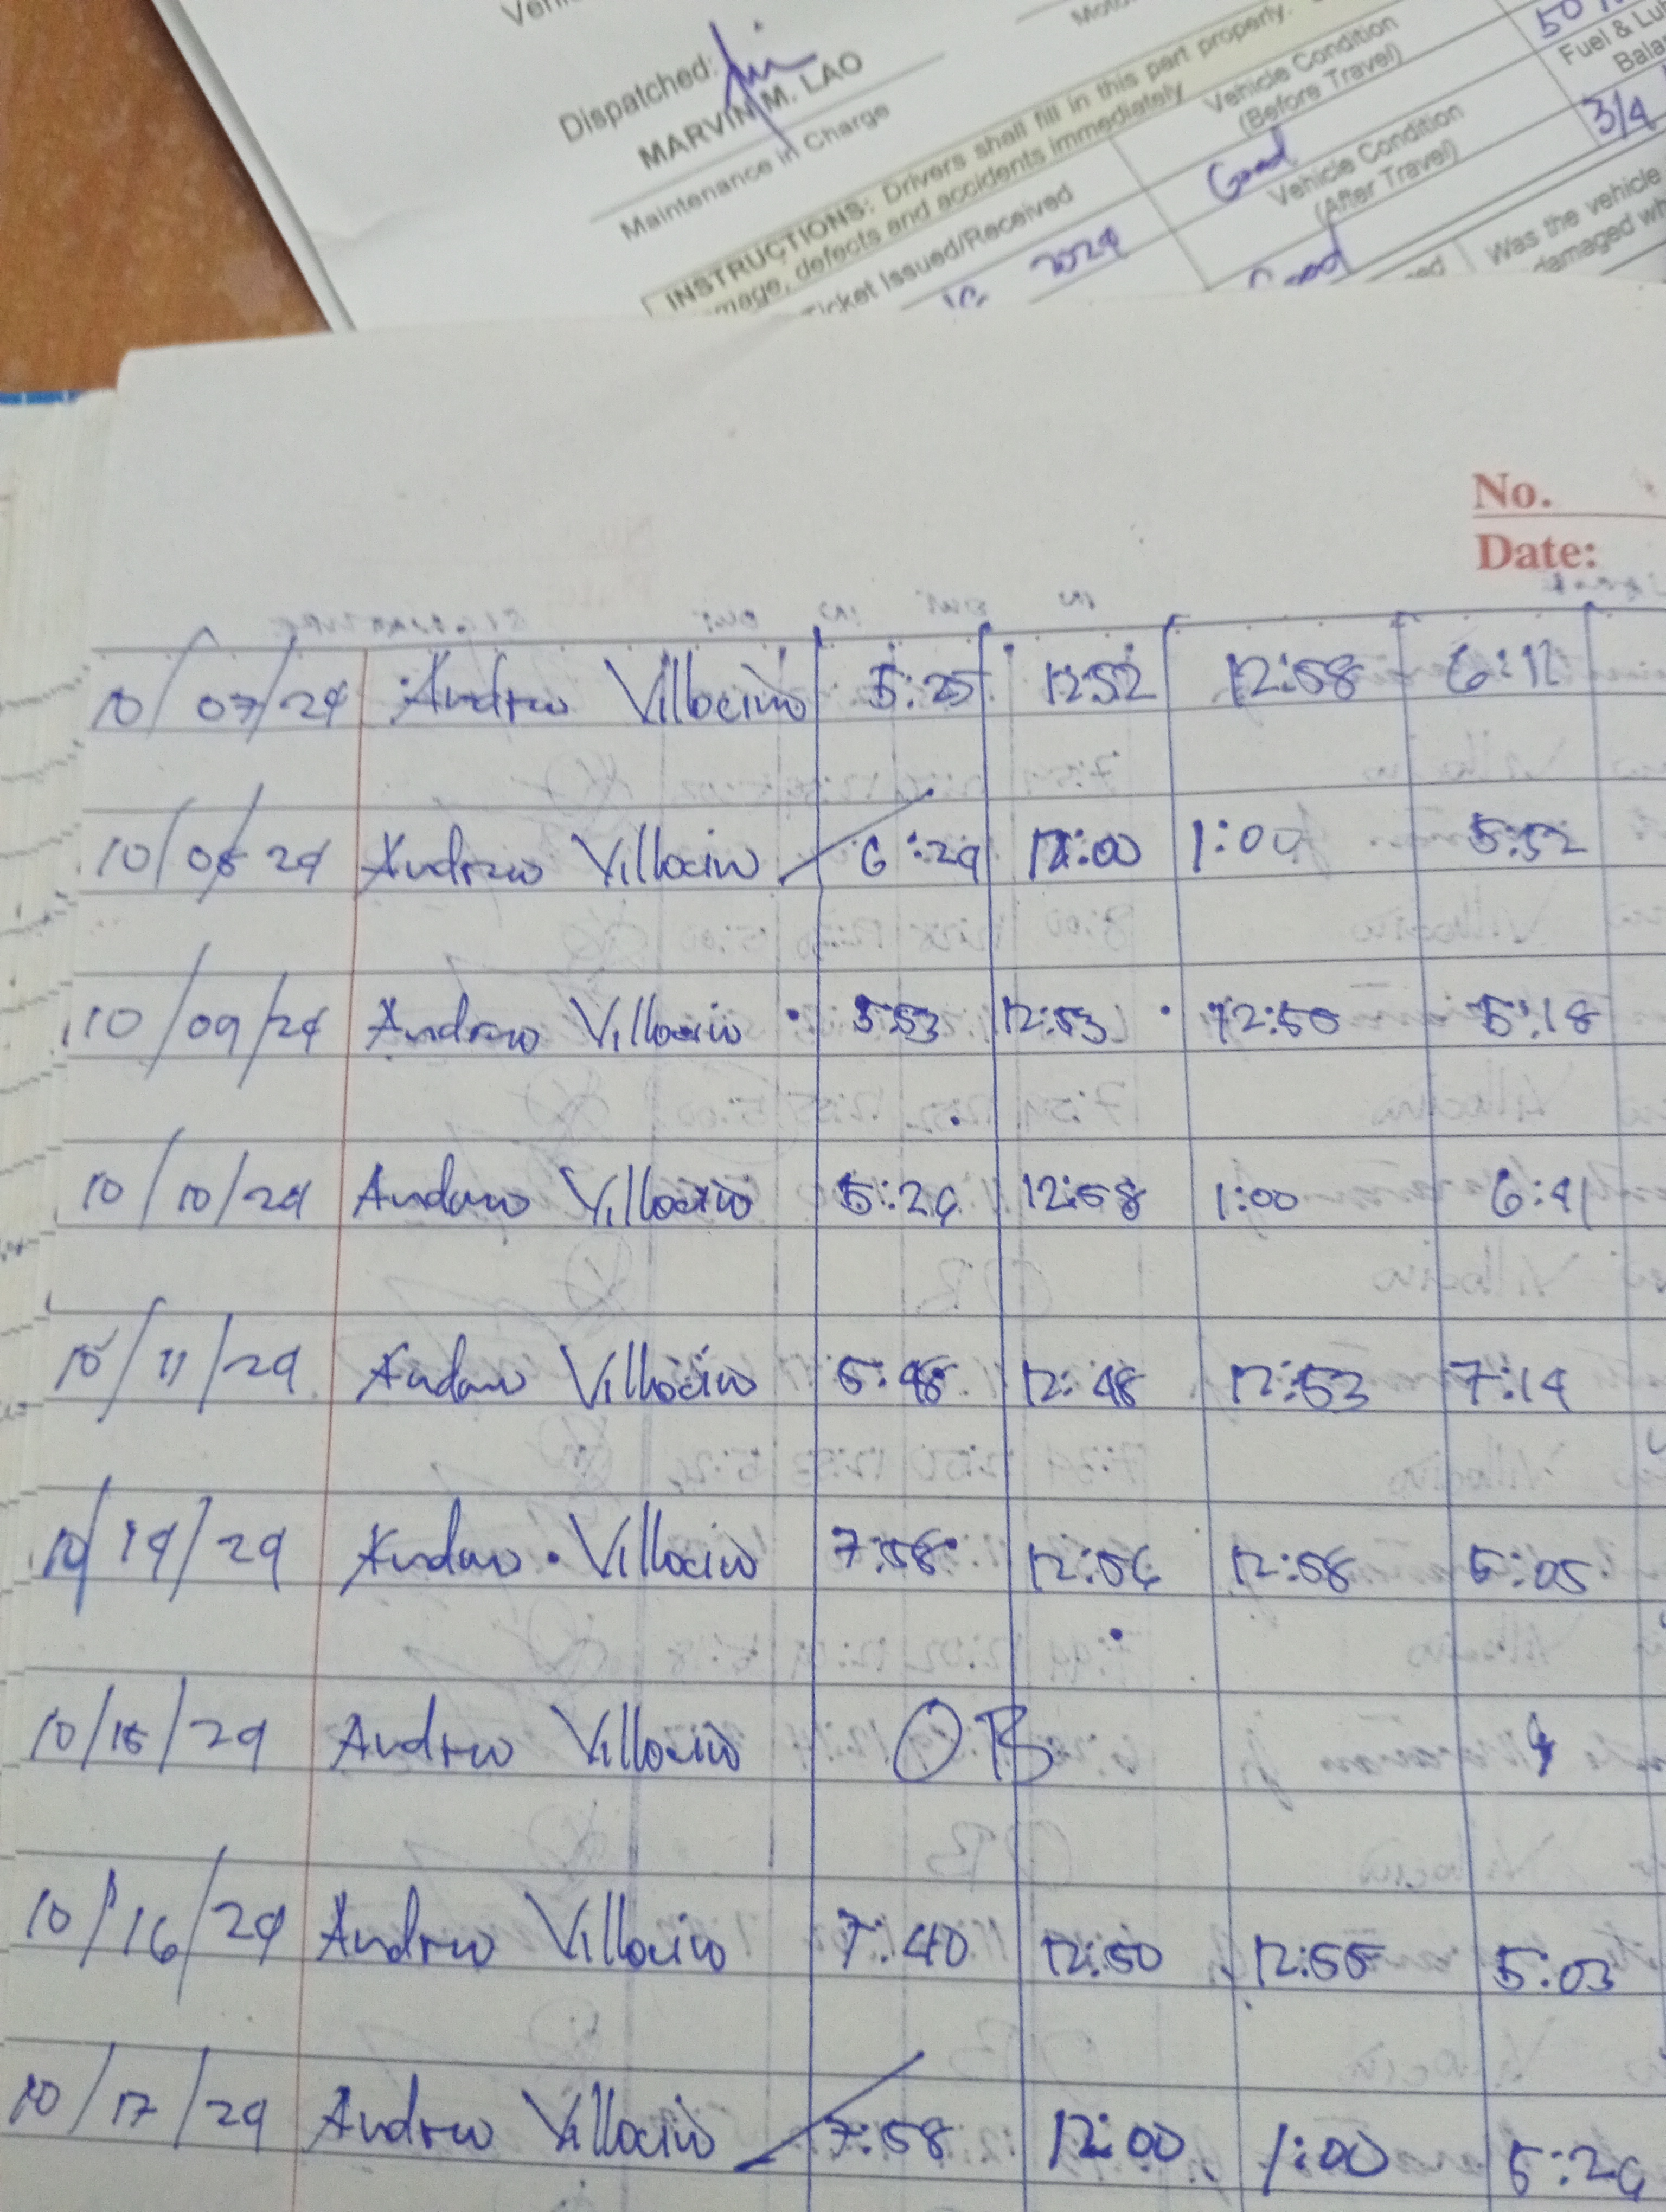 Dispatched:
MARVIN M. LAO
Maintenance in Charge
INSTRUCTIONS: Drivers shall fill in this part properly.
defects and accidents immediately
Ticket Issued/Received
2024
Vehicle Condition
(Before Travel)
Good
Vehicle Condition
(After Travel)
Good
Fuel & Lub
3/4
Was the vehicle
damaged wh
No.
Date:
10/07/24 Andrew Villocino 5:25 12:52 12:58 6:12
10/08 24 Andrew Villocino 6:24 12:00 1:00 5:52
10/09/24 Andrew Villocino 5:53 12:53 12:50 5:18
10/10/24 Andrew Villocino 5:26 12:58 1:00 6:41
10/11/24 Andrew Villocino 5:48 12:48 12:53 7:14
10/14/24 Andrew Villocino 7:58 12:56 12:58 5:05
10/15/24 Andrew Villocino OB
10/16/24 Andrew Villocino 7:40 12:50 12:55 5:03
10/17/24 Andrew Villocino 7:58 12:00 1:00 5:26